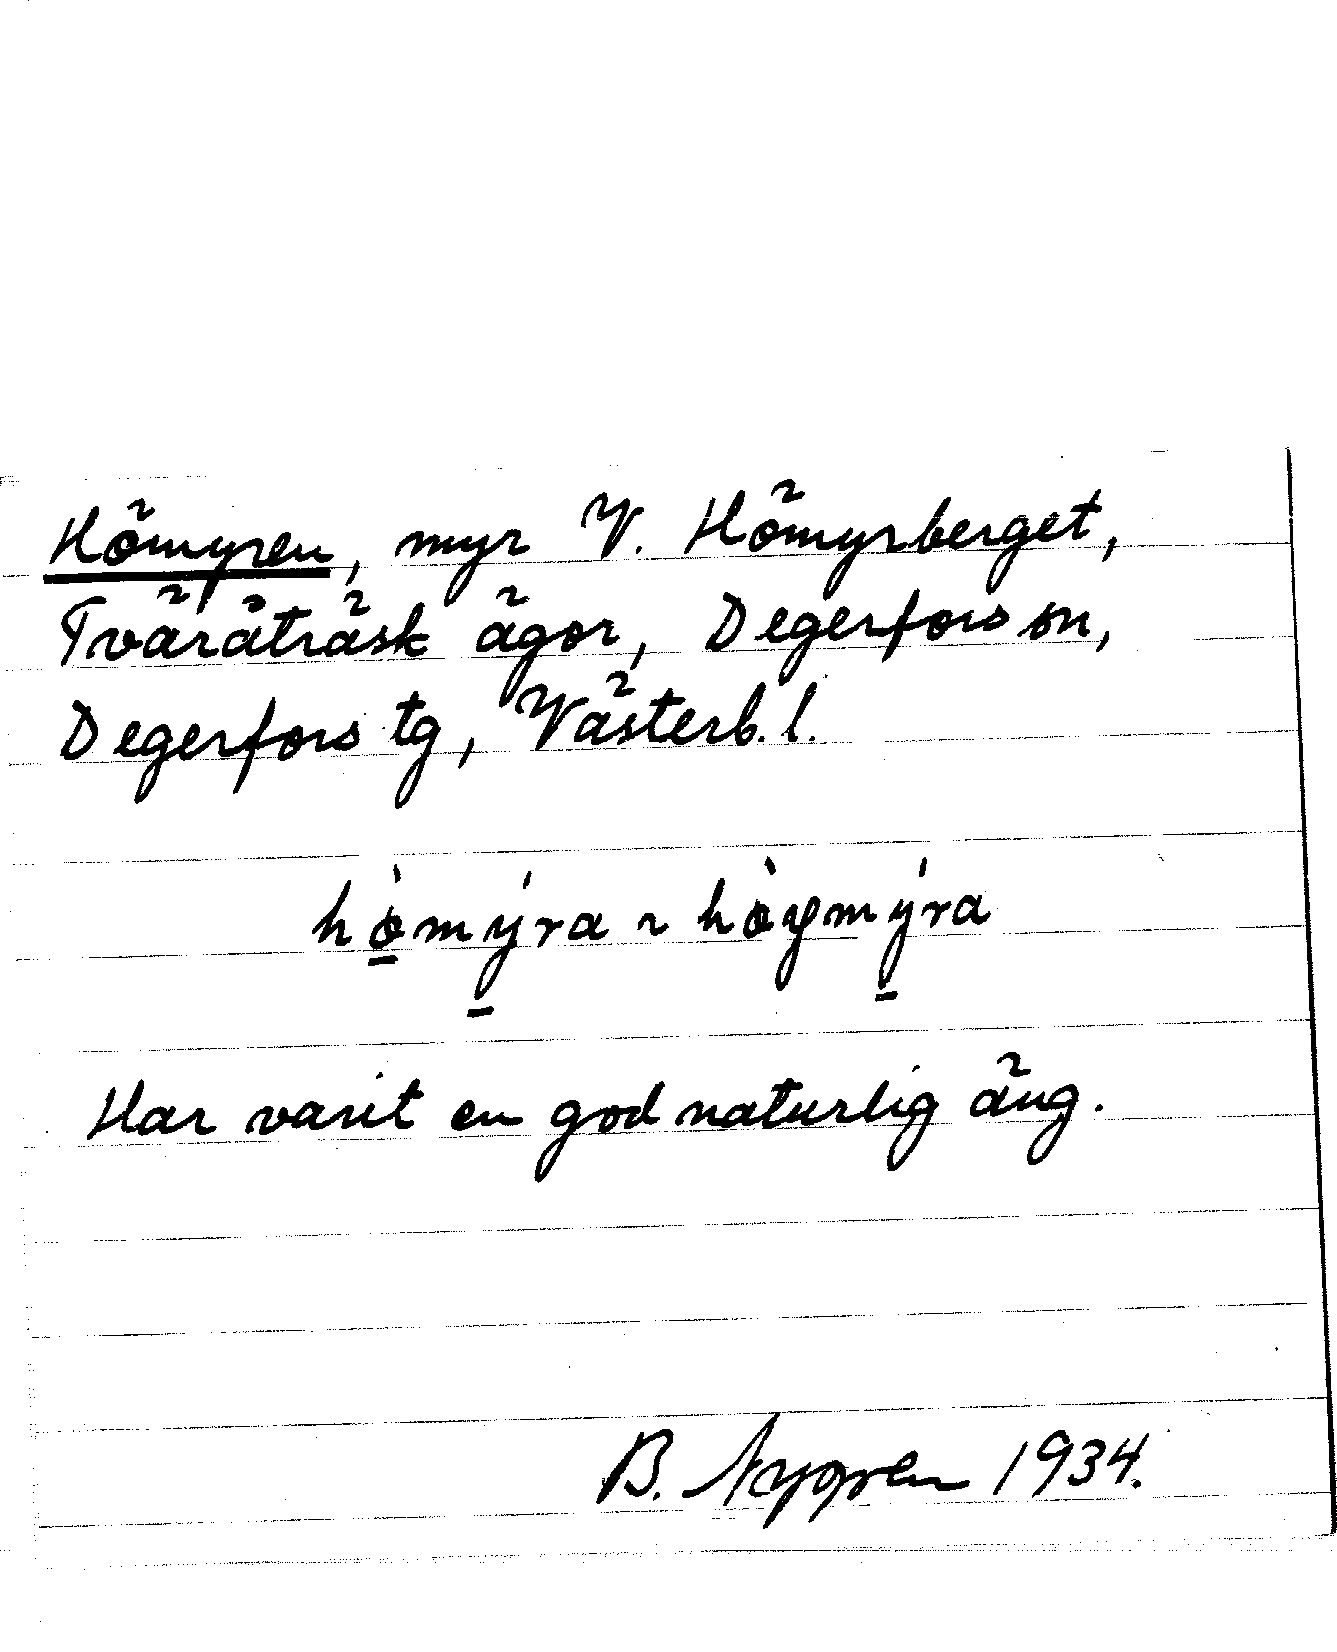 Hömyren, myr V. Hömyrberget,
Tväråträsk ägor, Degerfors sn,
Degerfors tg, Västerb. l.
hò̱mý̱ra ~ hòɡmý̱ra
Har varit en god naturlig äng.
B. Nygren 1934.